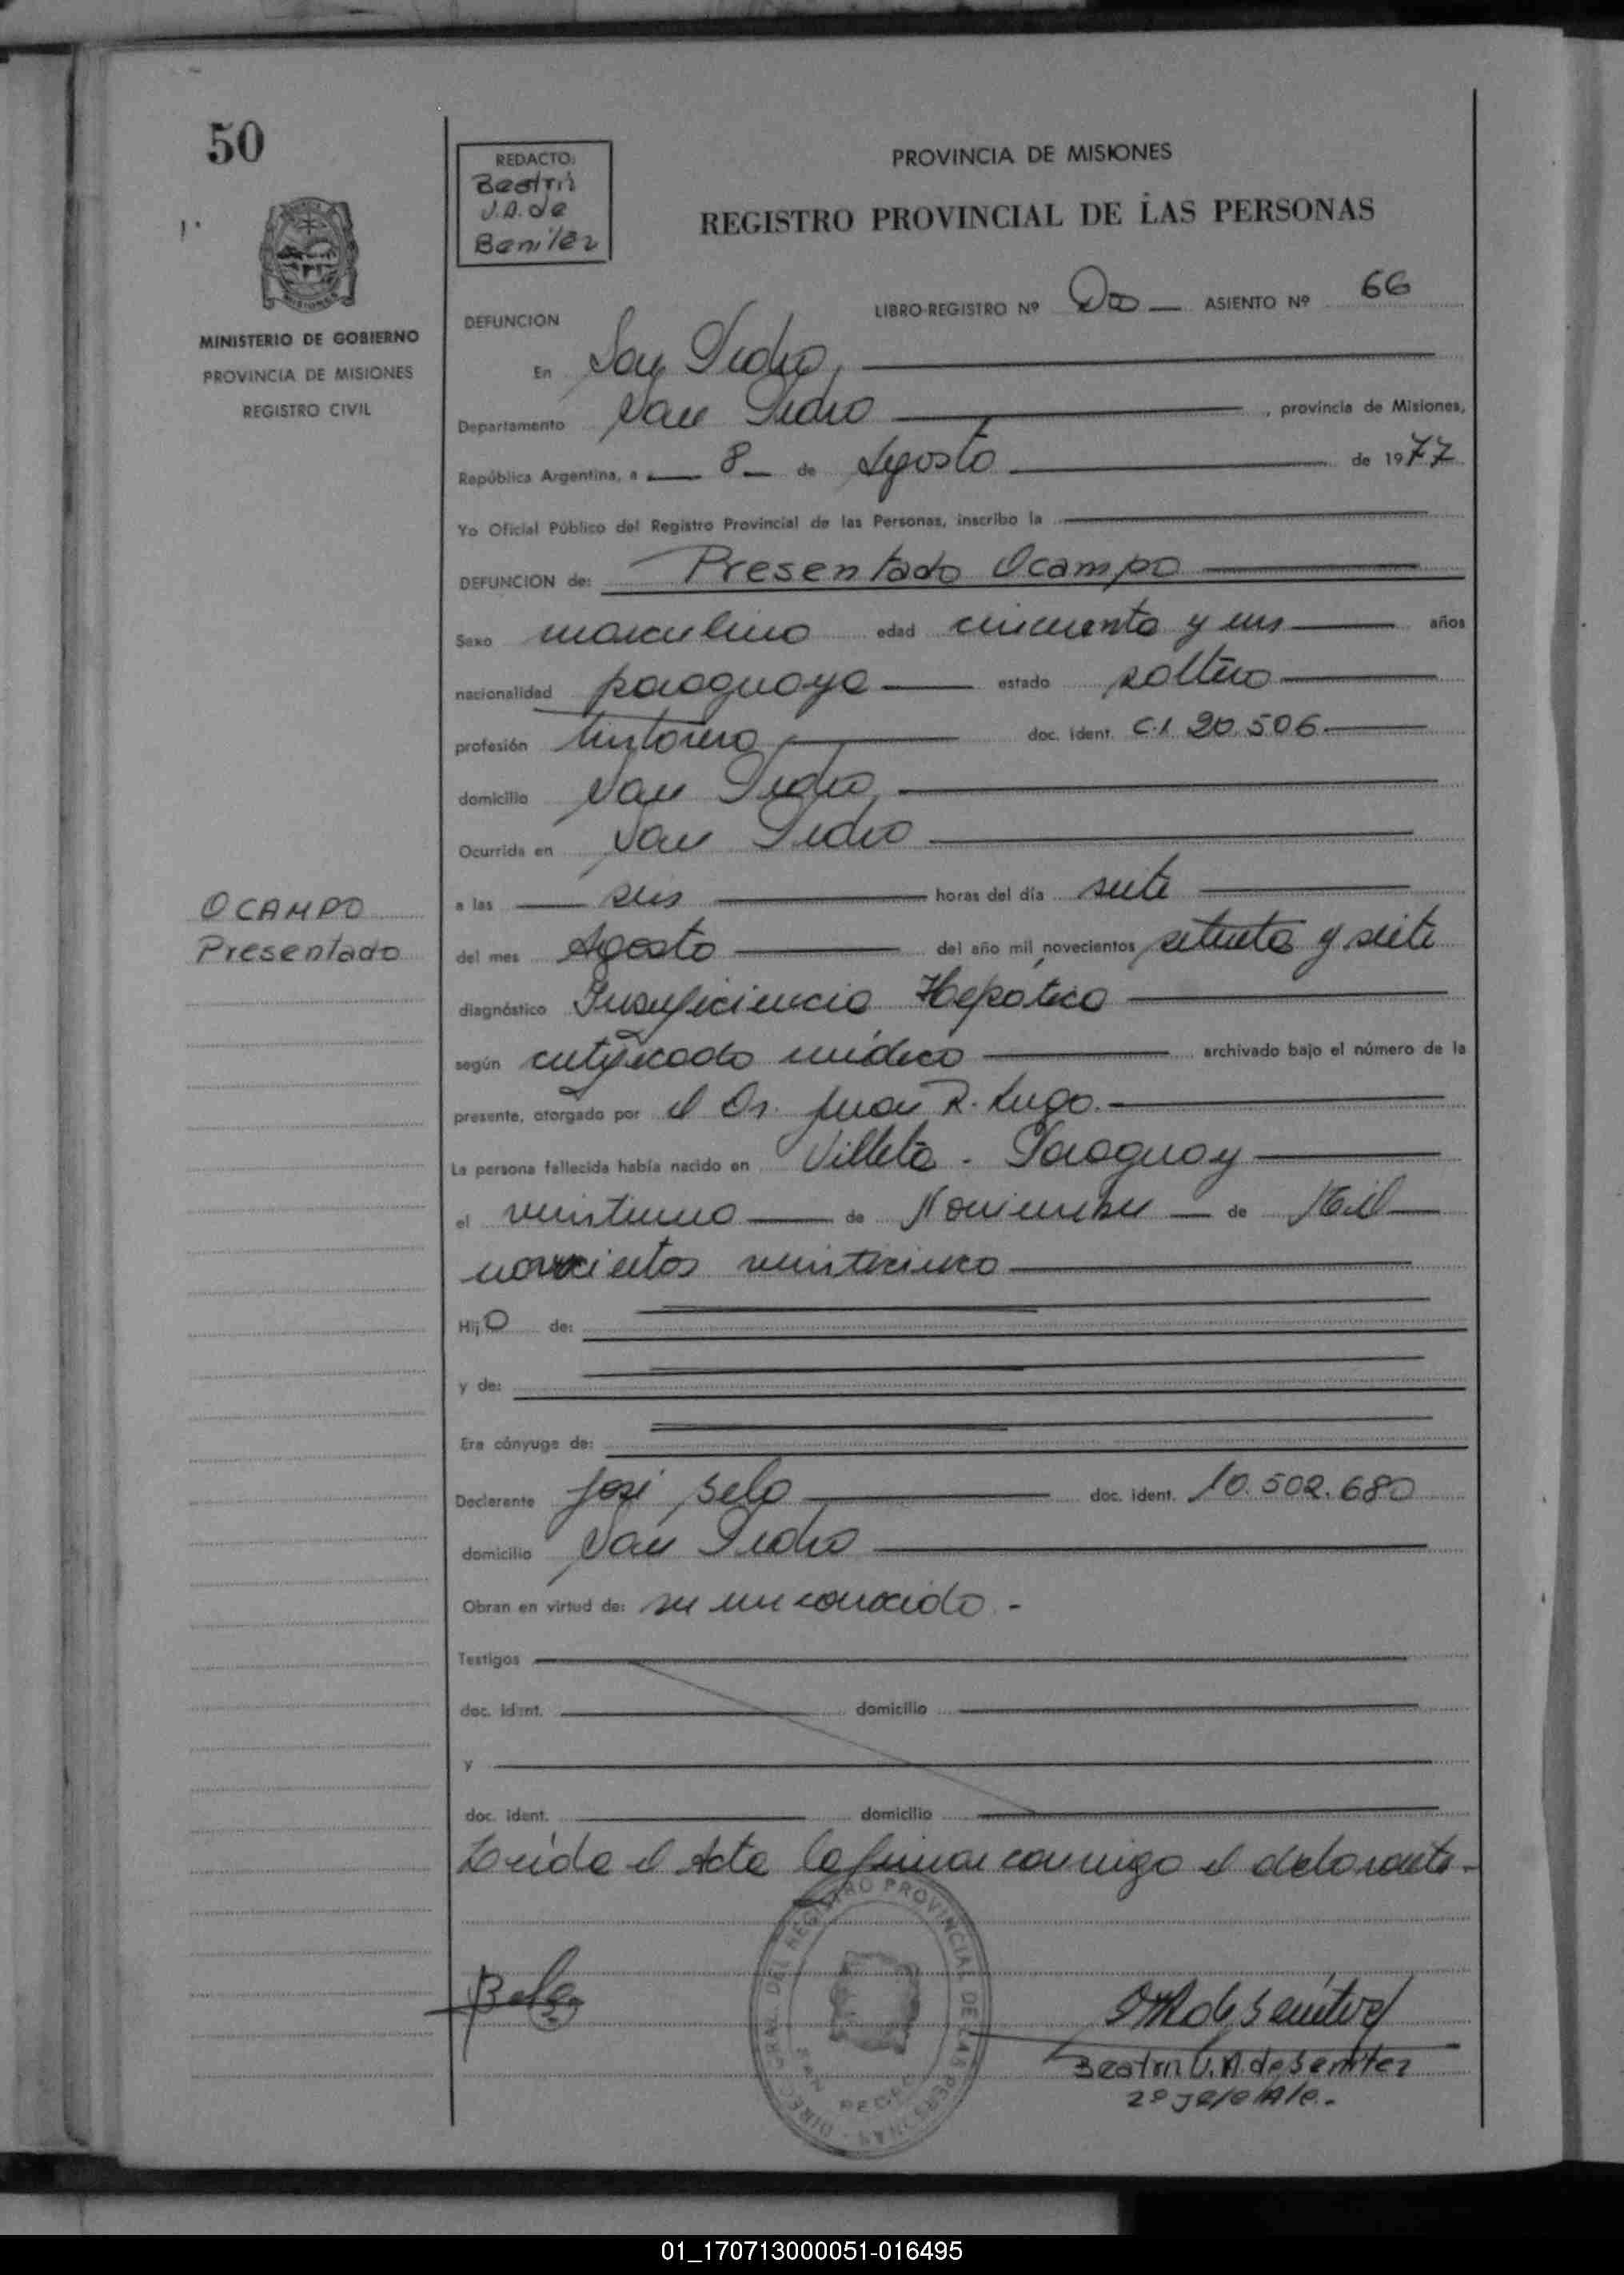 50
REDACTO:
Beatriz
V.A. de
Benitez
PROVINCIA DE MISIONES
REGISTRO PROVINCIAL DE LAS PERSONAS
MISIONES
MINISTERIO DE GOBIERNO
PROVINCIA DE MISIONES
REGISTRO CIVIL
LIBRO-REGISTRO Nº Dos ASIENTO Nº 66
DEFUNCION
En San Pedro,
Departamento San Pedro, provincia de Misiones,
República Argentina, a 8 de Agosto de 1977
Yo Oficial Público del Registro Provincial de las Personas, inscribo la
DEFUNCION de: Presentado Ocampo
Sexo masculino edad cincuenta y un años
nacionalidad paraguaya estado soltero
profesión tintorero doc. ident. C.I 20.506.
domicilio San Pedro
Ocurrida en San Pedro
a las seis horas del día siete
OCAMPO
Presentado
del mes Agosto del año mil novecientos setenta y siete
diagnóstico Insuficiencia Hepática
según certificado médico archivado bajo el número de la
presente, otorgado por el Dr. Juan R. Lugo.
La persona fallecida había nacido en Villeta - Paraguay
el veintiuno de Noviembre de Mil
novecientos veinticinco
Hijo de:
y de:
Era cónyuge de:
Declarante José Belo doc. ident. 10.502.680
domicilio San Pedro
Obran en virtud de: ser un conocido -
Testigos
doc. ident. domicilio
y
doc. ident. domicilio
Leída el Acta la firma conmigo el declarante -
DIREC. GRAL. DEL REGISTRO PROVINCIAL DE LAS PERSONAS
SAN PEDRO
Beatriz V.A. de Benitez
2º Jefe A/c.-
01_170713000051-016495